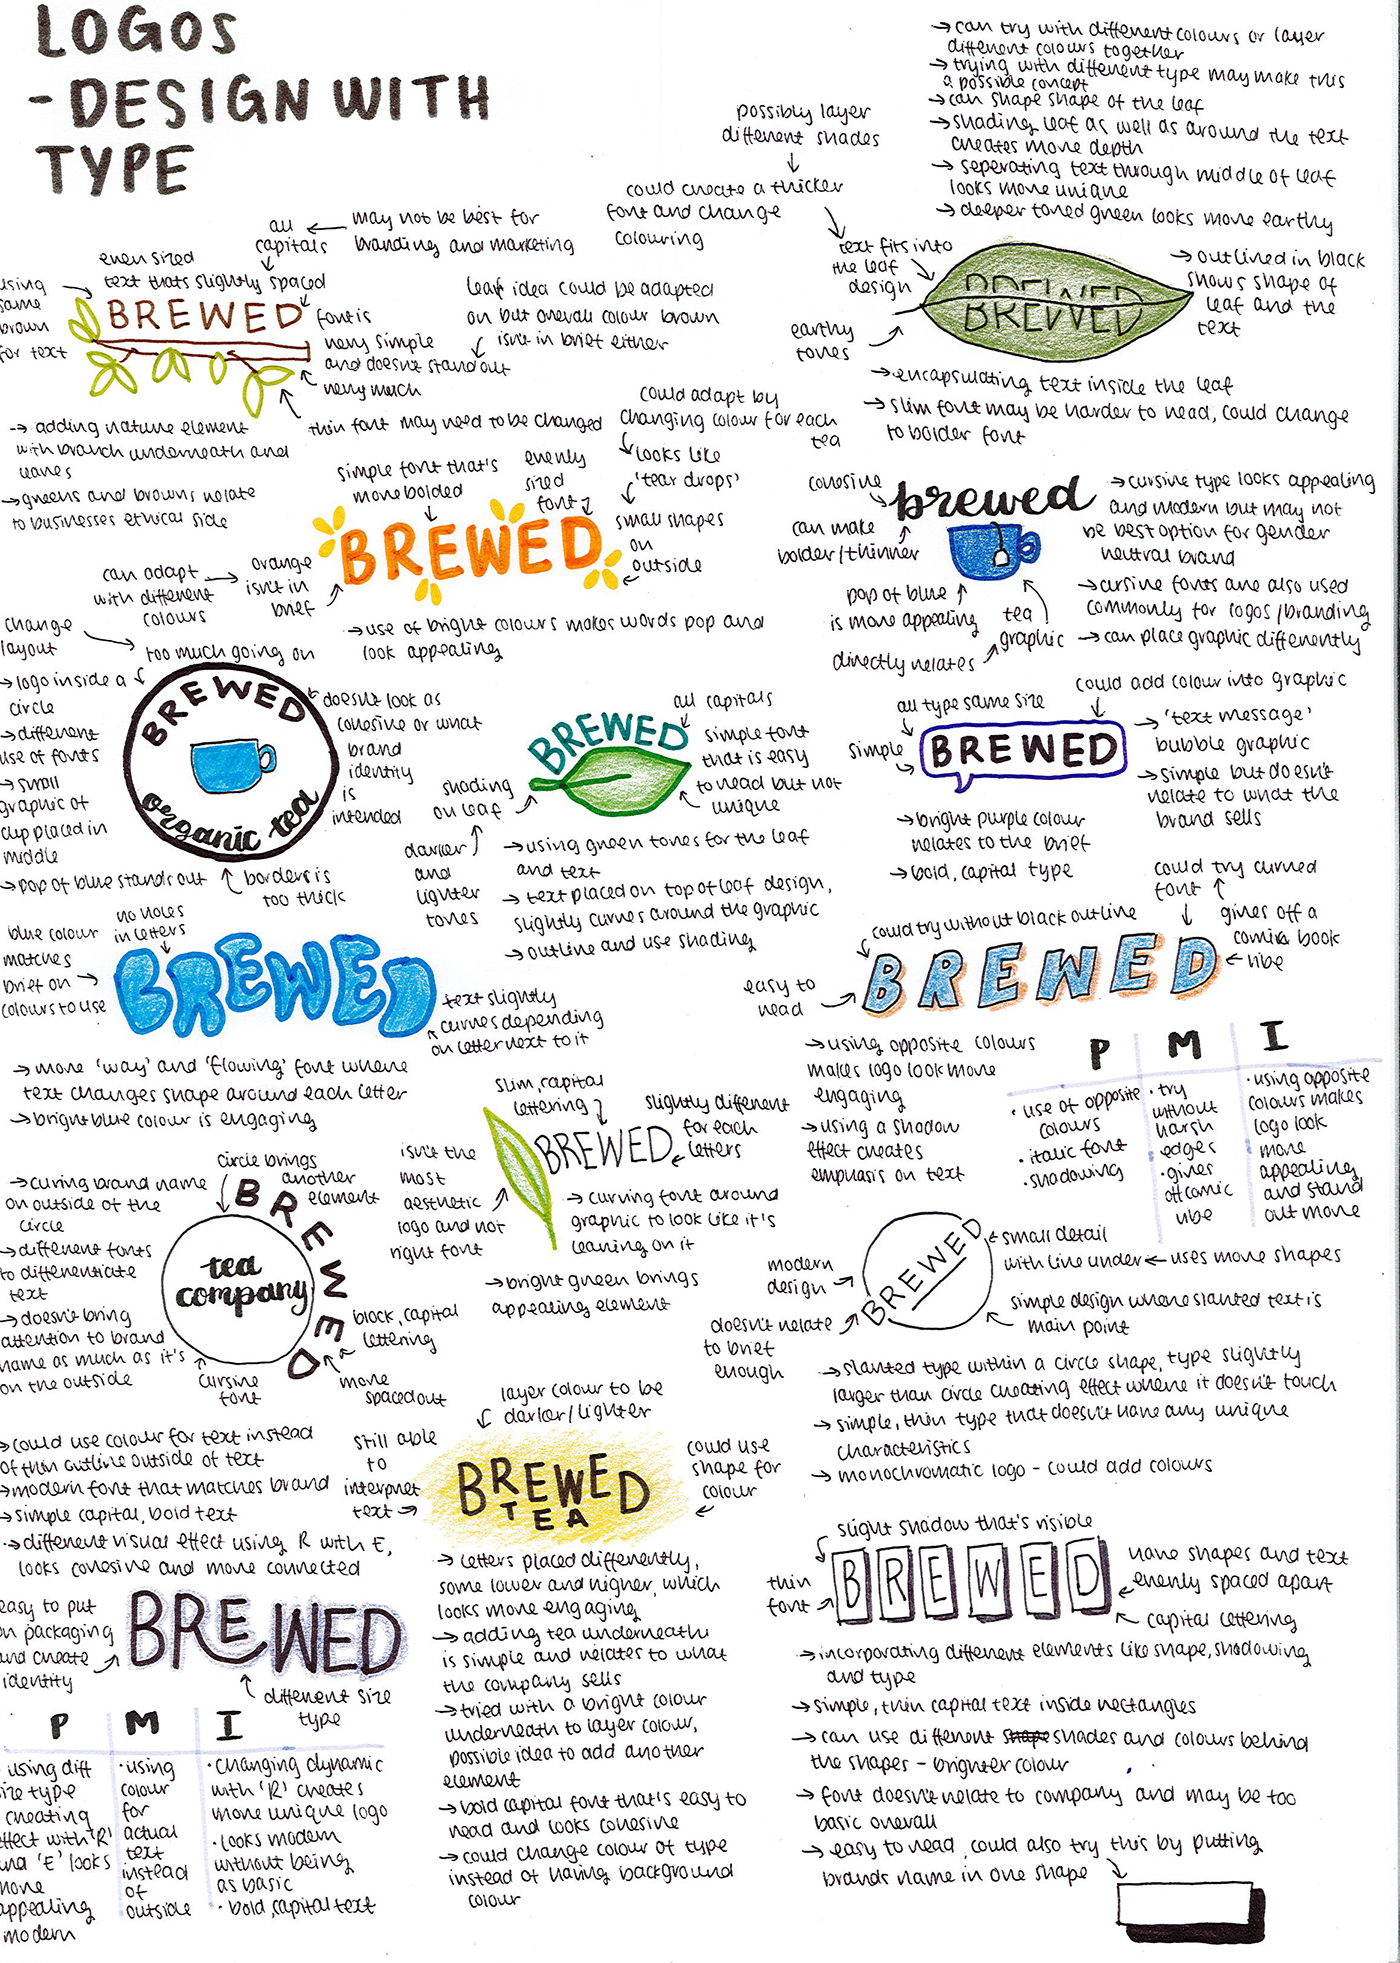 LOGOS
- DESIGN WITH
TYPE
→ can try with different colours or layer
different colours together
→ trying with different type may make this
a possible concept
→ can shape shape of the leaf
→ shading leaf as well as around the text
creates more depth
→ seperating text through middle of leaf
looks more unique
→ deeper toned green looks more earthy
possibly layer
different shades
could create a thicker
font and change
colouring
text fits into
the leaf
design
earthy
tones
BREWED
BREWED
→ outlined in black
shows shape of
leaf and the
text
→ encapsulating text inside the leaf
→ slim font may be harder to read, could change
to bolder font
all
capitals
may not be best for
branding and marketing
even sized
text thats slightly spaced
using
same
brown
for text
BREWED
font is
very simple
and doesn't stand out
very much
leaf idea could be adapted
on but overall colour brown
isn't in brief either
thin font may need to be changed
→ adding nature element
with branch underneath and
leaves
→ greens and browns relate
to businesses ethical side
simple font that's
more bolded
evenly
sized
font
could adapt by
changing colour for each
tea
looks like
'tear drops'
small shapes
on
outside
BREWED
can adapt
with different
colours
orange
isn't in
brief
→ use of bright colours makes words pop and
look appealing
cohesive
can make
bolder/thinner
brewed
pop of blue
is more appealing
directly relates
tea
graphic
→ cursive type looks appealing
and modern but may not
be best option for gender
neutral brand
→ cursive fonts are also used
commonly for logos/branding
→ can place graphic differently
change
layout
too much going on
→ logo inside a
circle
→ different
use of fonts
→ small
graphic of
cup placed in
middle
→ pop of blue stands out
BREWED
organic tea
doesn't look as
cohesive or what
brand
identity
is
intended
borders is
too thick
all capitals
BREWED
simple font
that is easy
to read but not
unique
shading
on leaf
darker
and
lighter
tones
→ using green tones for the leaf
and text
→ text placed on top of leaf design,
slightly curves around the graphic
→ outline and use shading
all type same size
could add colour into graphic
simple
BREWED
→ 'text message'
bubble graphic
→ simple but doesn't
relate to what the
brand sells
→ bright purple colour
relates to the brief
→ bold, capital type
no holes
in letters
blue colour
matches
brief on
colours to use
BREWED
text slightly
curves depending
on letter next to it
→ more 'way' and 'flowing' font where
text changes shape around each letter
→ bright blue colour is engaging
could try without black outline
could try curved
font
gives off a
comics book
vibe
easy to
read
BREWED
→ using opposite colours
makes logo look more
engaging
→ using a shadow
effect creates
emphasis on text
P M I
· use of opposite
colours
· italic font
· shadowing
· try
without
harsh
edges
· gives
off comic
vibe
· using opposite
colours makes
logo look
more
appealing
and stand
out more
slim, capital
lettering
slightly different
for each
letters
isn't the
most
aesthetic
logo and not
right font
BREWED
→ curving font around
graphic to look like it's
leaning on it
→ bright green brings
appealing element
circle brings
another
element
→ curing brand name
on outside of the
circle
→ different fonts
to differentiate
text
→ doesn't bring
attention to brand
name as much as it's
on the outside
BREWED
tea
company
block, capital
lettering
cursive
font
more
spaced out
modern
design
doesn't relate
to brief
enough
BREWED
small detail
with line under ← uses more shapes
simple design where slanted text is
main point
→ slanted type within a circle shape, type slightly
larger than circle creating effect where it doesn't touch
→ simple, thin type that doesn't have any unique
characteristics
→ monochromatic logo - could add colours
layer colour to be
darker/lighter
still able
to
interpret
text →
could use
shape for
colour
BREWED
TEA
→ letters placed differently,
some lower and higher, which
looks more engaging
→ adding tea underneath
is simple and relates to what
the company sells
→ tried with a bright colour
underneath to layer colour,
possible idea to add another
element
→ bold capital font that's easy to
read and looks cohesive
→ could change colour of type
instead of having background
colour
→ could use colour for text instead
of thin outline outside of text
→ modern font that matches brand
→ simple capital, bold text
→ different visual effect using R with E,
looks cohesive and more connected
easy to put
on packaging
and create
identity
BREWED
different size
type
P M I
using diff
size type
creating
effect with 'R'
and 'E' looks
more
appealing
modern
· using
colour
for
actual
text
instead
of
outside
· changing dynamic
with 'R' creates
more unique logo
· looks modern
without being
as basic
· bold, capital text
slight shadow that's visible
thin
font
BREWED
have shapes and text
evenly spaced apart
capital lettering
→ incorporating different elements like shape, shadowing
and type
→ simple, thin capital text inside rectangles
→ can use different shades and colours behind
the shapes - brighter colour
→ font doesn't relate to company and may be too
basic overall
→ easy to read, could also try this by putting
brands name in one shape